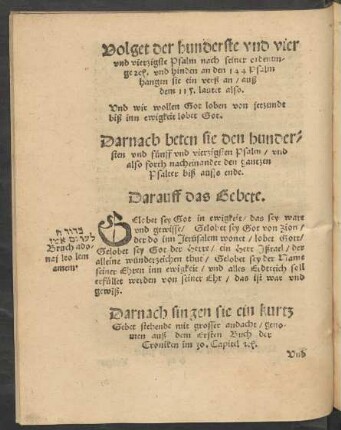 Volget der hunderste vnd vier
vnd vierzigste Psalm nach seiner ordenun-
ge ꝛc. vnd hinden an den 144 Psalm
hangen sie ein verß an / auß
dem 115. lautet also.
Vnd wir wollen Got loben von jetzundt
biß inn ewigkeit lobet Got.
Darnach beten sie den hunder-
sten vnd fünff vnd viertzigsten Psalm / vnd
also forth nacheinander den gantzen
Psalter biß auffs ende.
Darauff das Gebete.
Gelobet sey Got in ewigkeit / das sey war
vnd gewiß / Gelobet sey Got von Zion /
der do inn Jerusalem wonet / lobet Gott /
Gelobet sey Got der Herr / ein Herr Ißrael / der
alleine wunderzeichen thut / Gelobet sey der Name
seiner Ehren inn ewigkeit / vnd alles Erdtreich soll
erfüllet werden von seiner Ehr / das ist war vnd
gewiß.
לעולם אמן
Bruch ado-
nai leo lem
amen
Darnach singen sie ein kurtz
Gebet stehende mit grosser andacht / geno-
men auß dem Ersten Buch der
Croniken im 30. Capitel ꝛc.
Vnd